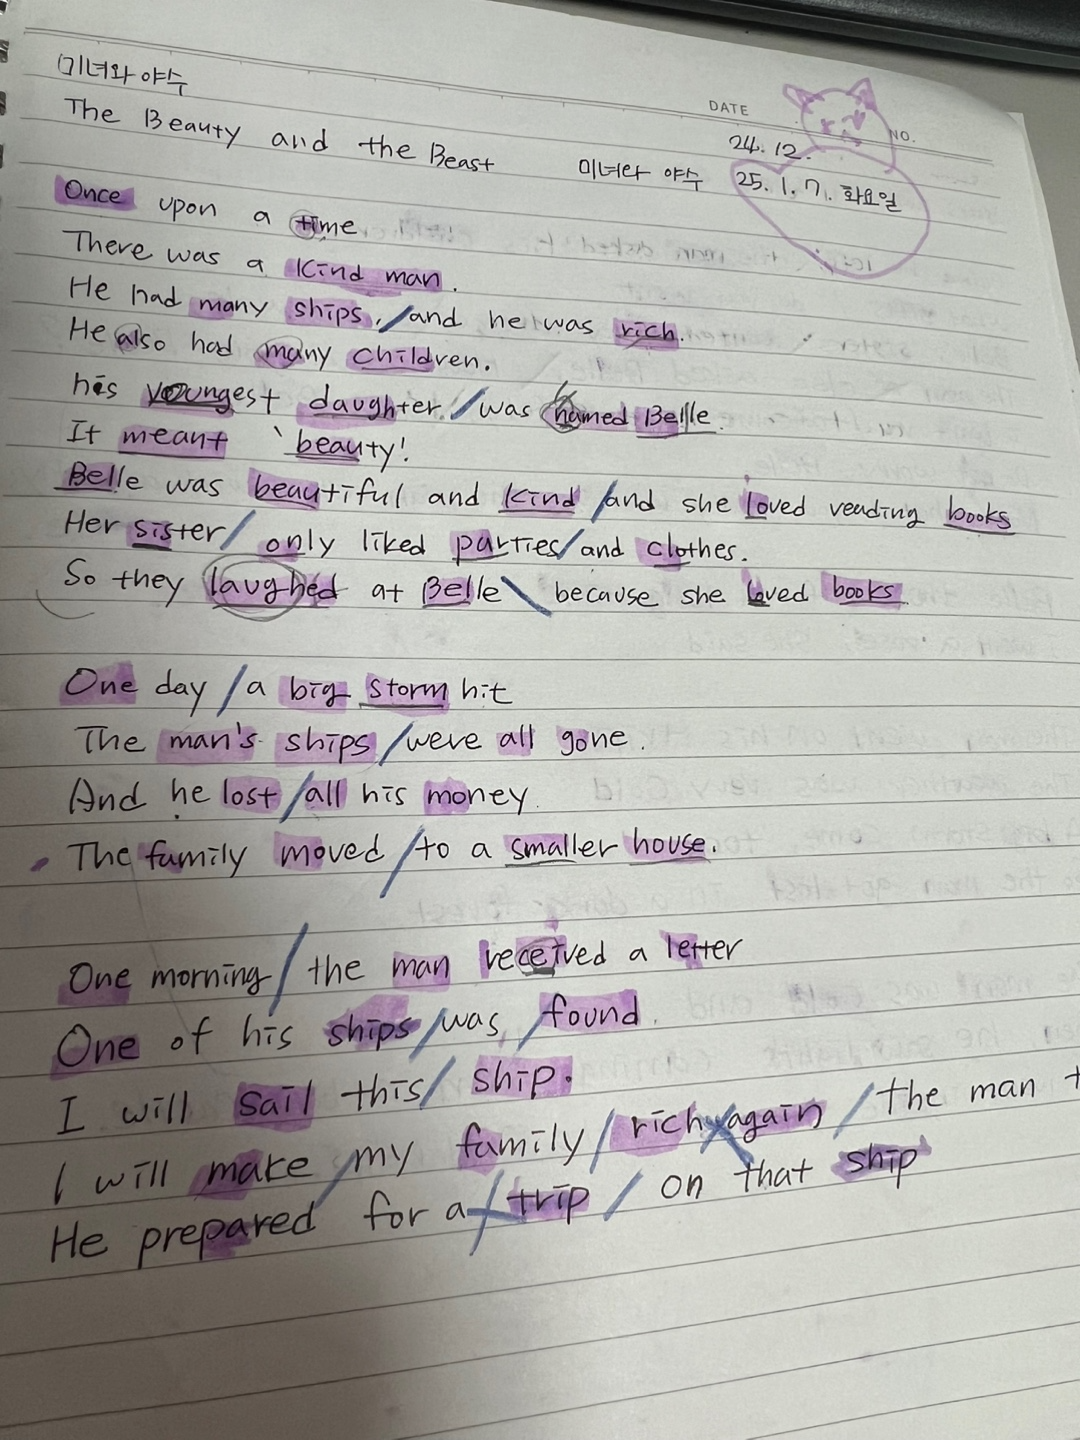 미녀와 야수
The Beauty and the Beast
DATE
NO.
24.12.
미녀와 야수
25.1.7. 화요일
Once upon a time
There was a kind man.
He had many ships, / and he was rich.
He also had many children.
his youngest daughter / was named Belle.
It meant 'beauty!
Belle was beautiful and kind / and she loved reading books
Her sister / only liked parties / and clothes.
So they laughed at Belle \ because she loved books
One day / a big storm hit
The man's ships / were all gone.
And he lost / all his money.
The family moved / to a smaller house.
One morning / the man received a letter
One of his ships / was / found.
I will sail this / ship.
I will make / my family / rich again / the man
He prepared for a / trip / on that ship